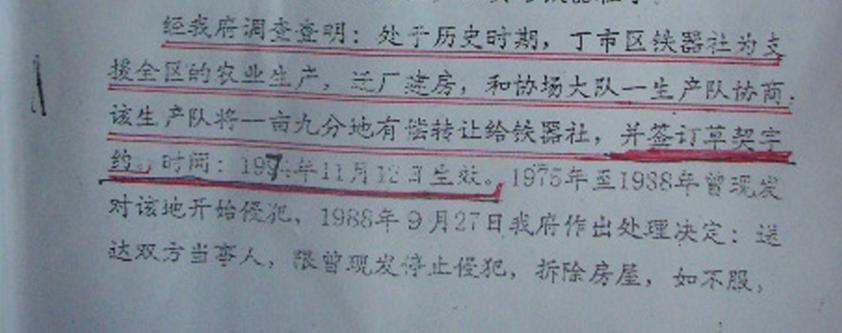 经我府调查查明：处于历史时期，丁市区铁器社为支
援全区的农业生产，迁厂建房，和协场大队一生产队协商，
该生产队将一亩九分地有偿转让给铁器社，并签订草契字
约。时间：1974年11月12日生效。1975年至1988年曾现发
对该地开始侵犯，1988年9月27日我府作出处理决定：送
达双方当事人，限曾现发停止侵犯，拆除房屋，如不服，